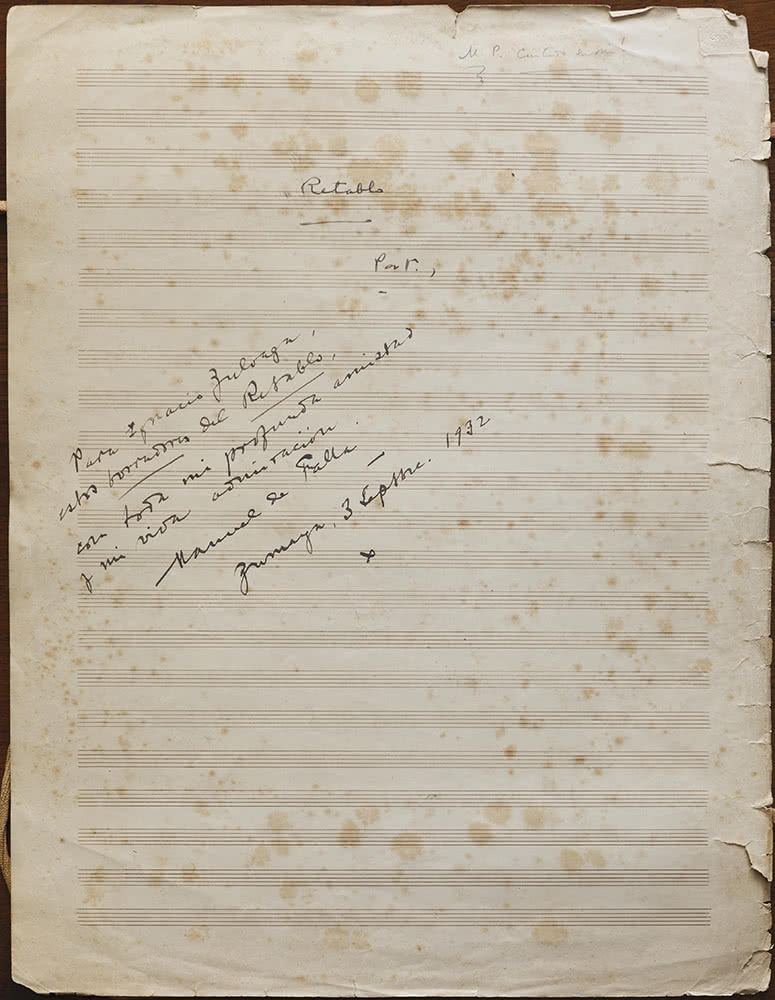 M. P.
Retablo
Part.,
Para Ignacio Zuloaga,
estos borradores del Retablo,
con toda mi profunda amistad
y mi viva admiración.
Manuel de Falla
Zumaya, 3 Septbre. 1932